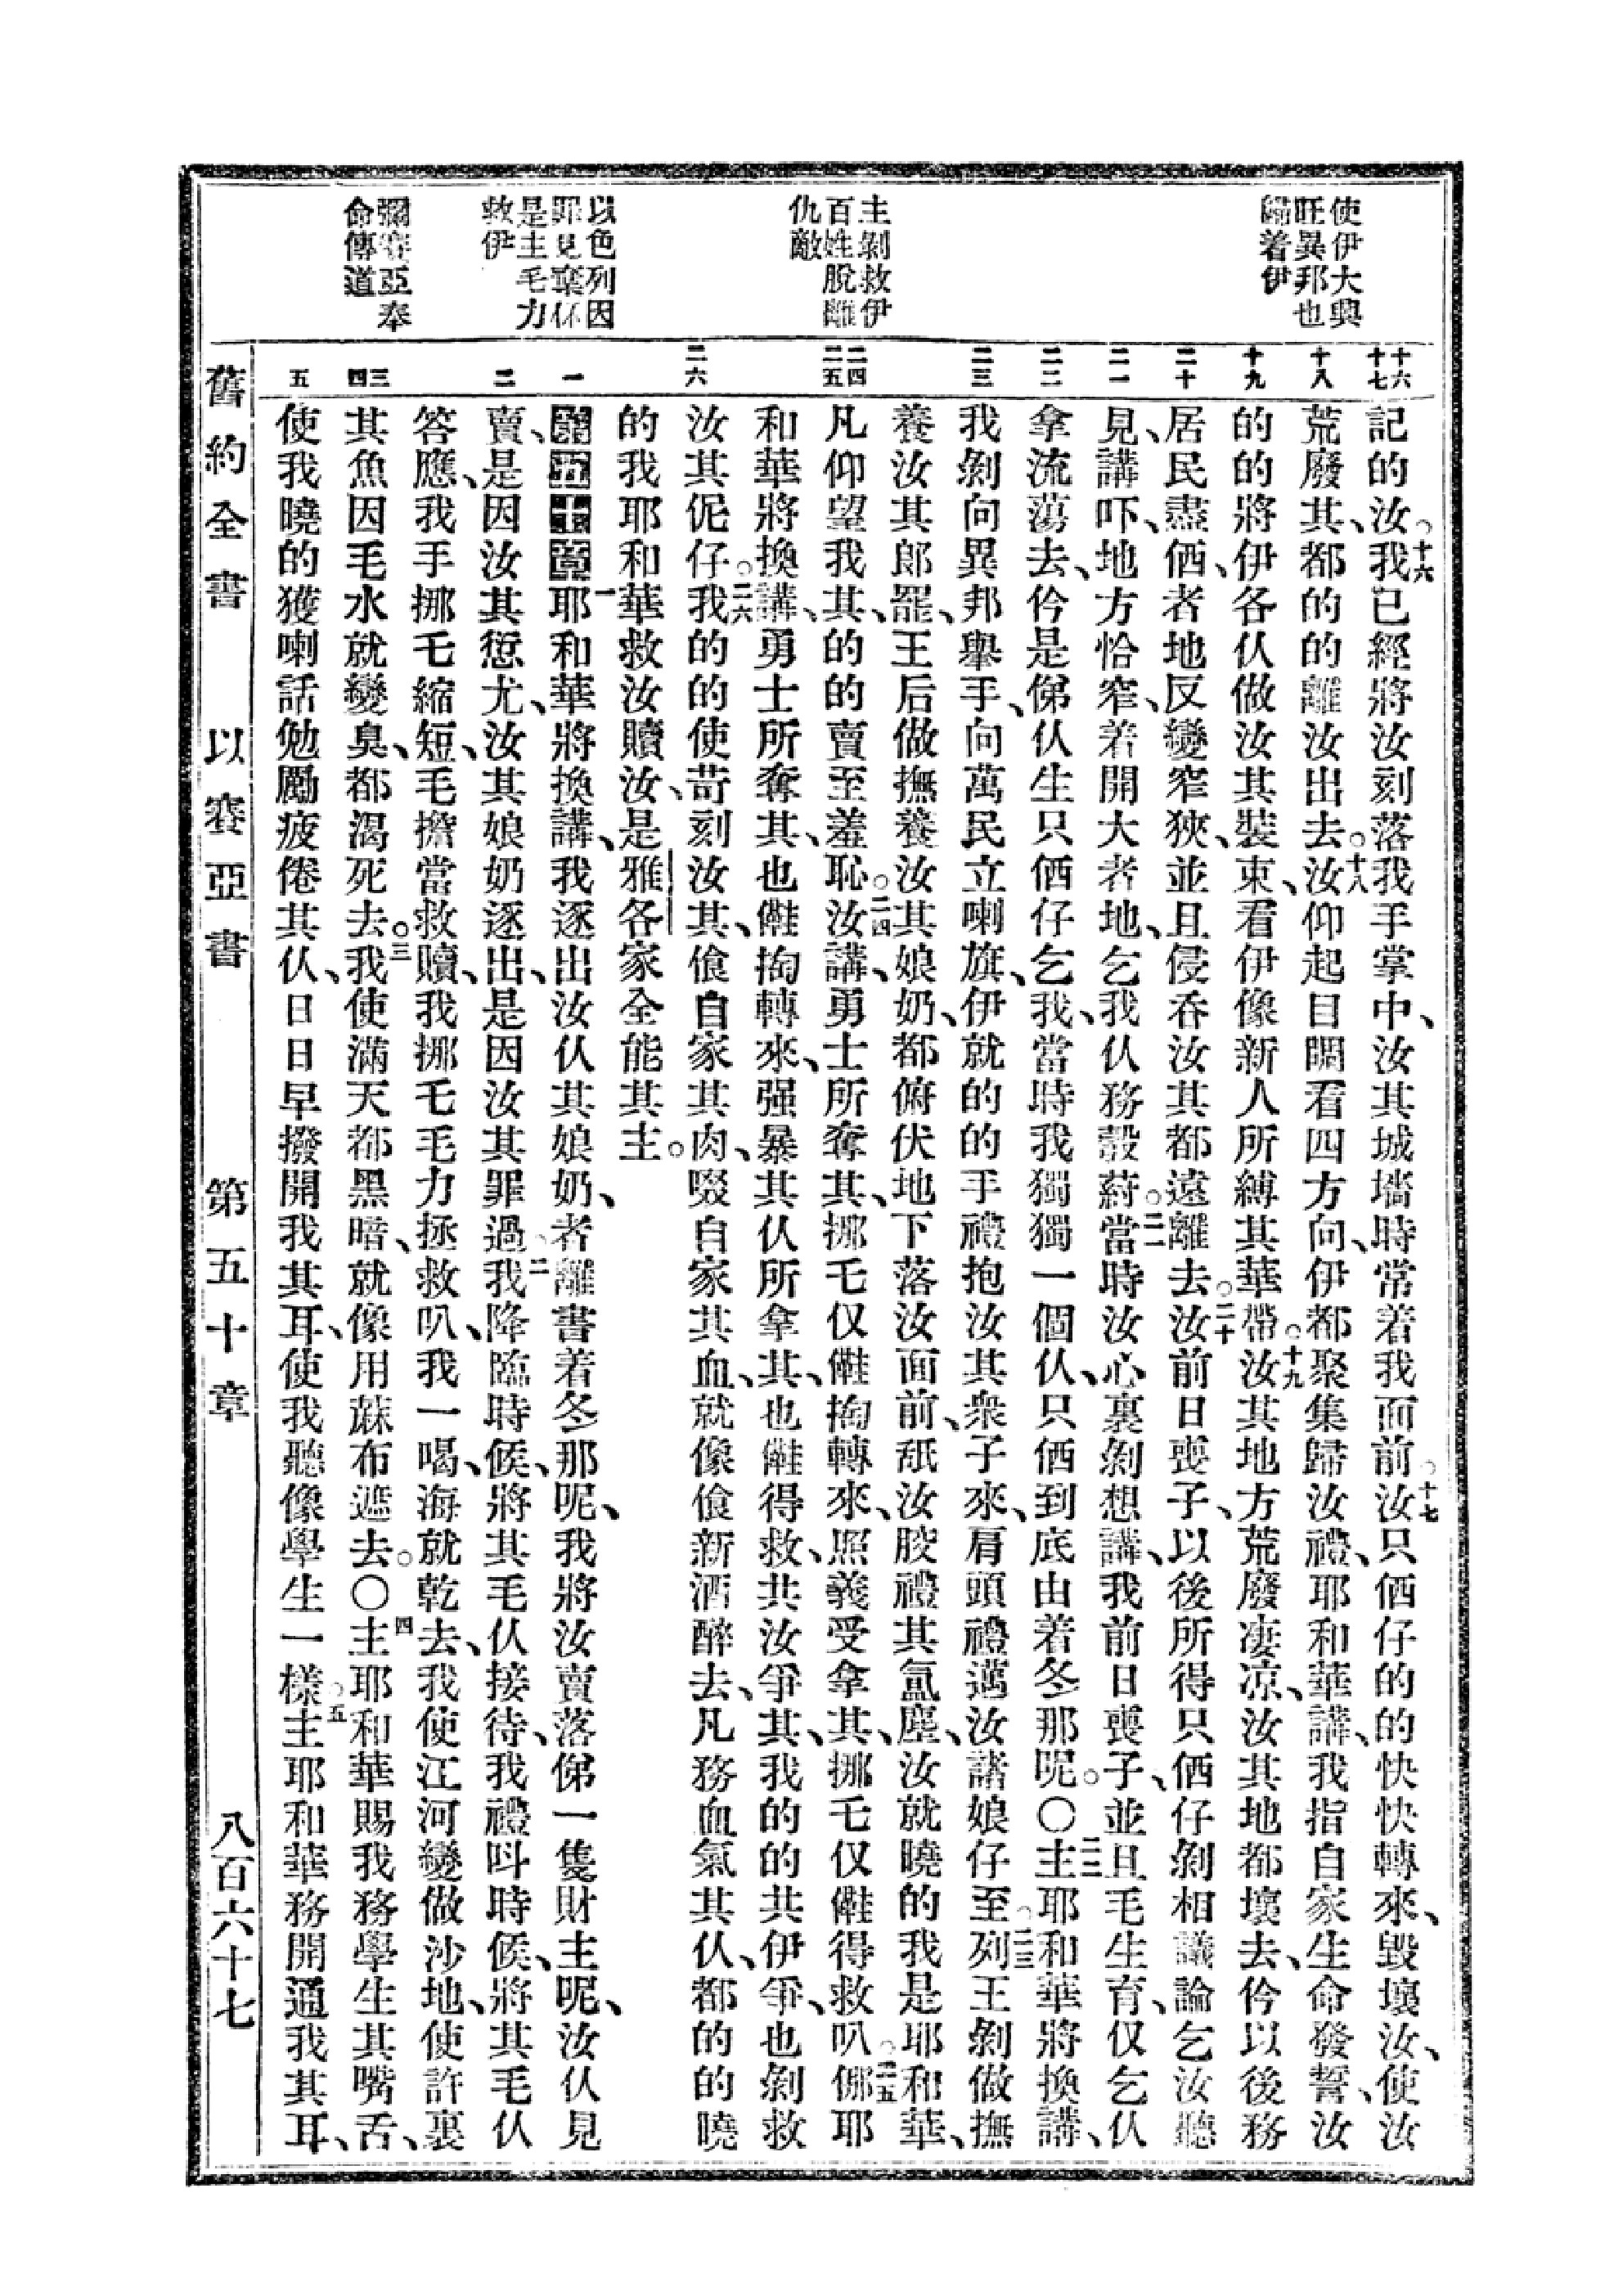 使伊大興
旺異邦也
歸着伊
主剝救伊
百姓脫離
仇敵
以色列因
罪見棄伓
是主毛力
救伊
彌賽亞奉
命傳道
十六
十七
十八
十九
二十
二一
二二
二三
二四
二五
二六
一
二
三
四
五
記的汝。十六我已經將汝刻落我手掌中、汝其城墻時常着我面前。十七汝只㑚仔的的快快轉來、毀壞汝、使汝
荒廢其、都的的離汝出去。十八汝仰起目睭看四方向、伊都聚集歸汝禮、耶和華講、我指自家生命發誓、汝
的的將伊各仈做汝其裝束、看伊像新人所縛其華帶。十九汝其地方荒廢凄凉、汝其地都壞去、仱以後務
居民盡㑚、者地反變窄狹、並且侵吞汝其都遠離去。二十汝前日喪子、以後所得只㑚仔剝相議論乞汝聽
見、講吓、地方恰窄、着開大者地、乞我仈務㲄蔚。二一當時汝心裏剝想講、我前日喪子、並且毛生育、仅乞仈
拿流蕩去、仱是俤仈生只㑚仔乞我、當時我獨獨一個仈、只㑚到底由着冬那呢。〇二二主耶和華將換講、
我剝向異邦舉手、向萬民立喇旗、伊就的的手禮抱汝其衆子來、肩頭禮邁汝諸娘仔至。二三列王剝做撫
養汝其郎罷、王后做撫養汝其娘奶、都俯伏地下落汝面前、舐汝骹禮其氲塵、汝就曉的我是耶和華、
凡仰望我其、的的賣至羞恥。二四汝講、勇士所奪其、挪乇仅㒧掏轉來、照義受拿其、挪乇仅㒧得救叭。二五㑚耶
和華將換講、勇士所奪其、也㒧掏轉來、强暴其仈所拿其、也㒧得救、共汝爭其、我的的共伊爭、也剝救
汝其伲仔。二六我的的使苛刻汝其、飡自家其肉、啜自家其血、就像飡新酒醉去、凡務血氣其仈、都的的曉
的我耶和華救汝贖汝、是雅各家全能其主。
第五十章一耶和華將換講、我逐出汝仈其娘奶、者離書着冬那呢、我將汝賣落俤一隻財主呢、汝仈見
賣、是因汝其愆尤、汝其娘奶逐出、是因汝其罪過。二我降臨時候、將其毛仈接待、我禮呌時候、將其毛仈
答應、我手挪乇縮短、毛擔當救贖、我挪乇毛力拯救叭、我一喝、海就乾去、我使江河變做沙地、使許裏
其魚因毛水就變臭、都渴死去。三我使滿天都黑暗、就像用蔴布遮去。〇四主耶和華賜我務學生其嘴舌、
使我曉的獲喇話勉勵疲倦其仈、日日早撥開我其耳、使我聽像學生一樣。五主耶和華務開通我其耳、
舊約全書 以賽亞書 第五十章 八百六十七